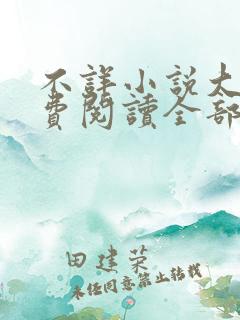 不詳小說太
費閱讀全部
田建荣
未经同意禁止转载